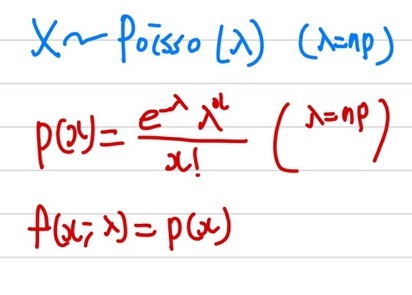 X ~ Poisso(λ) (λ=np)
p(x) = e^-λ λ^x / x! (λ=np)
f(x; λ) = p(x)